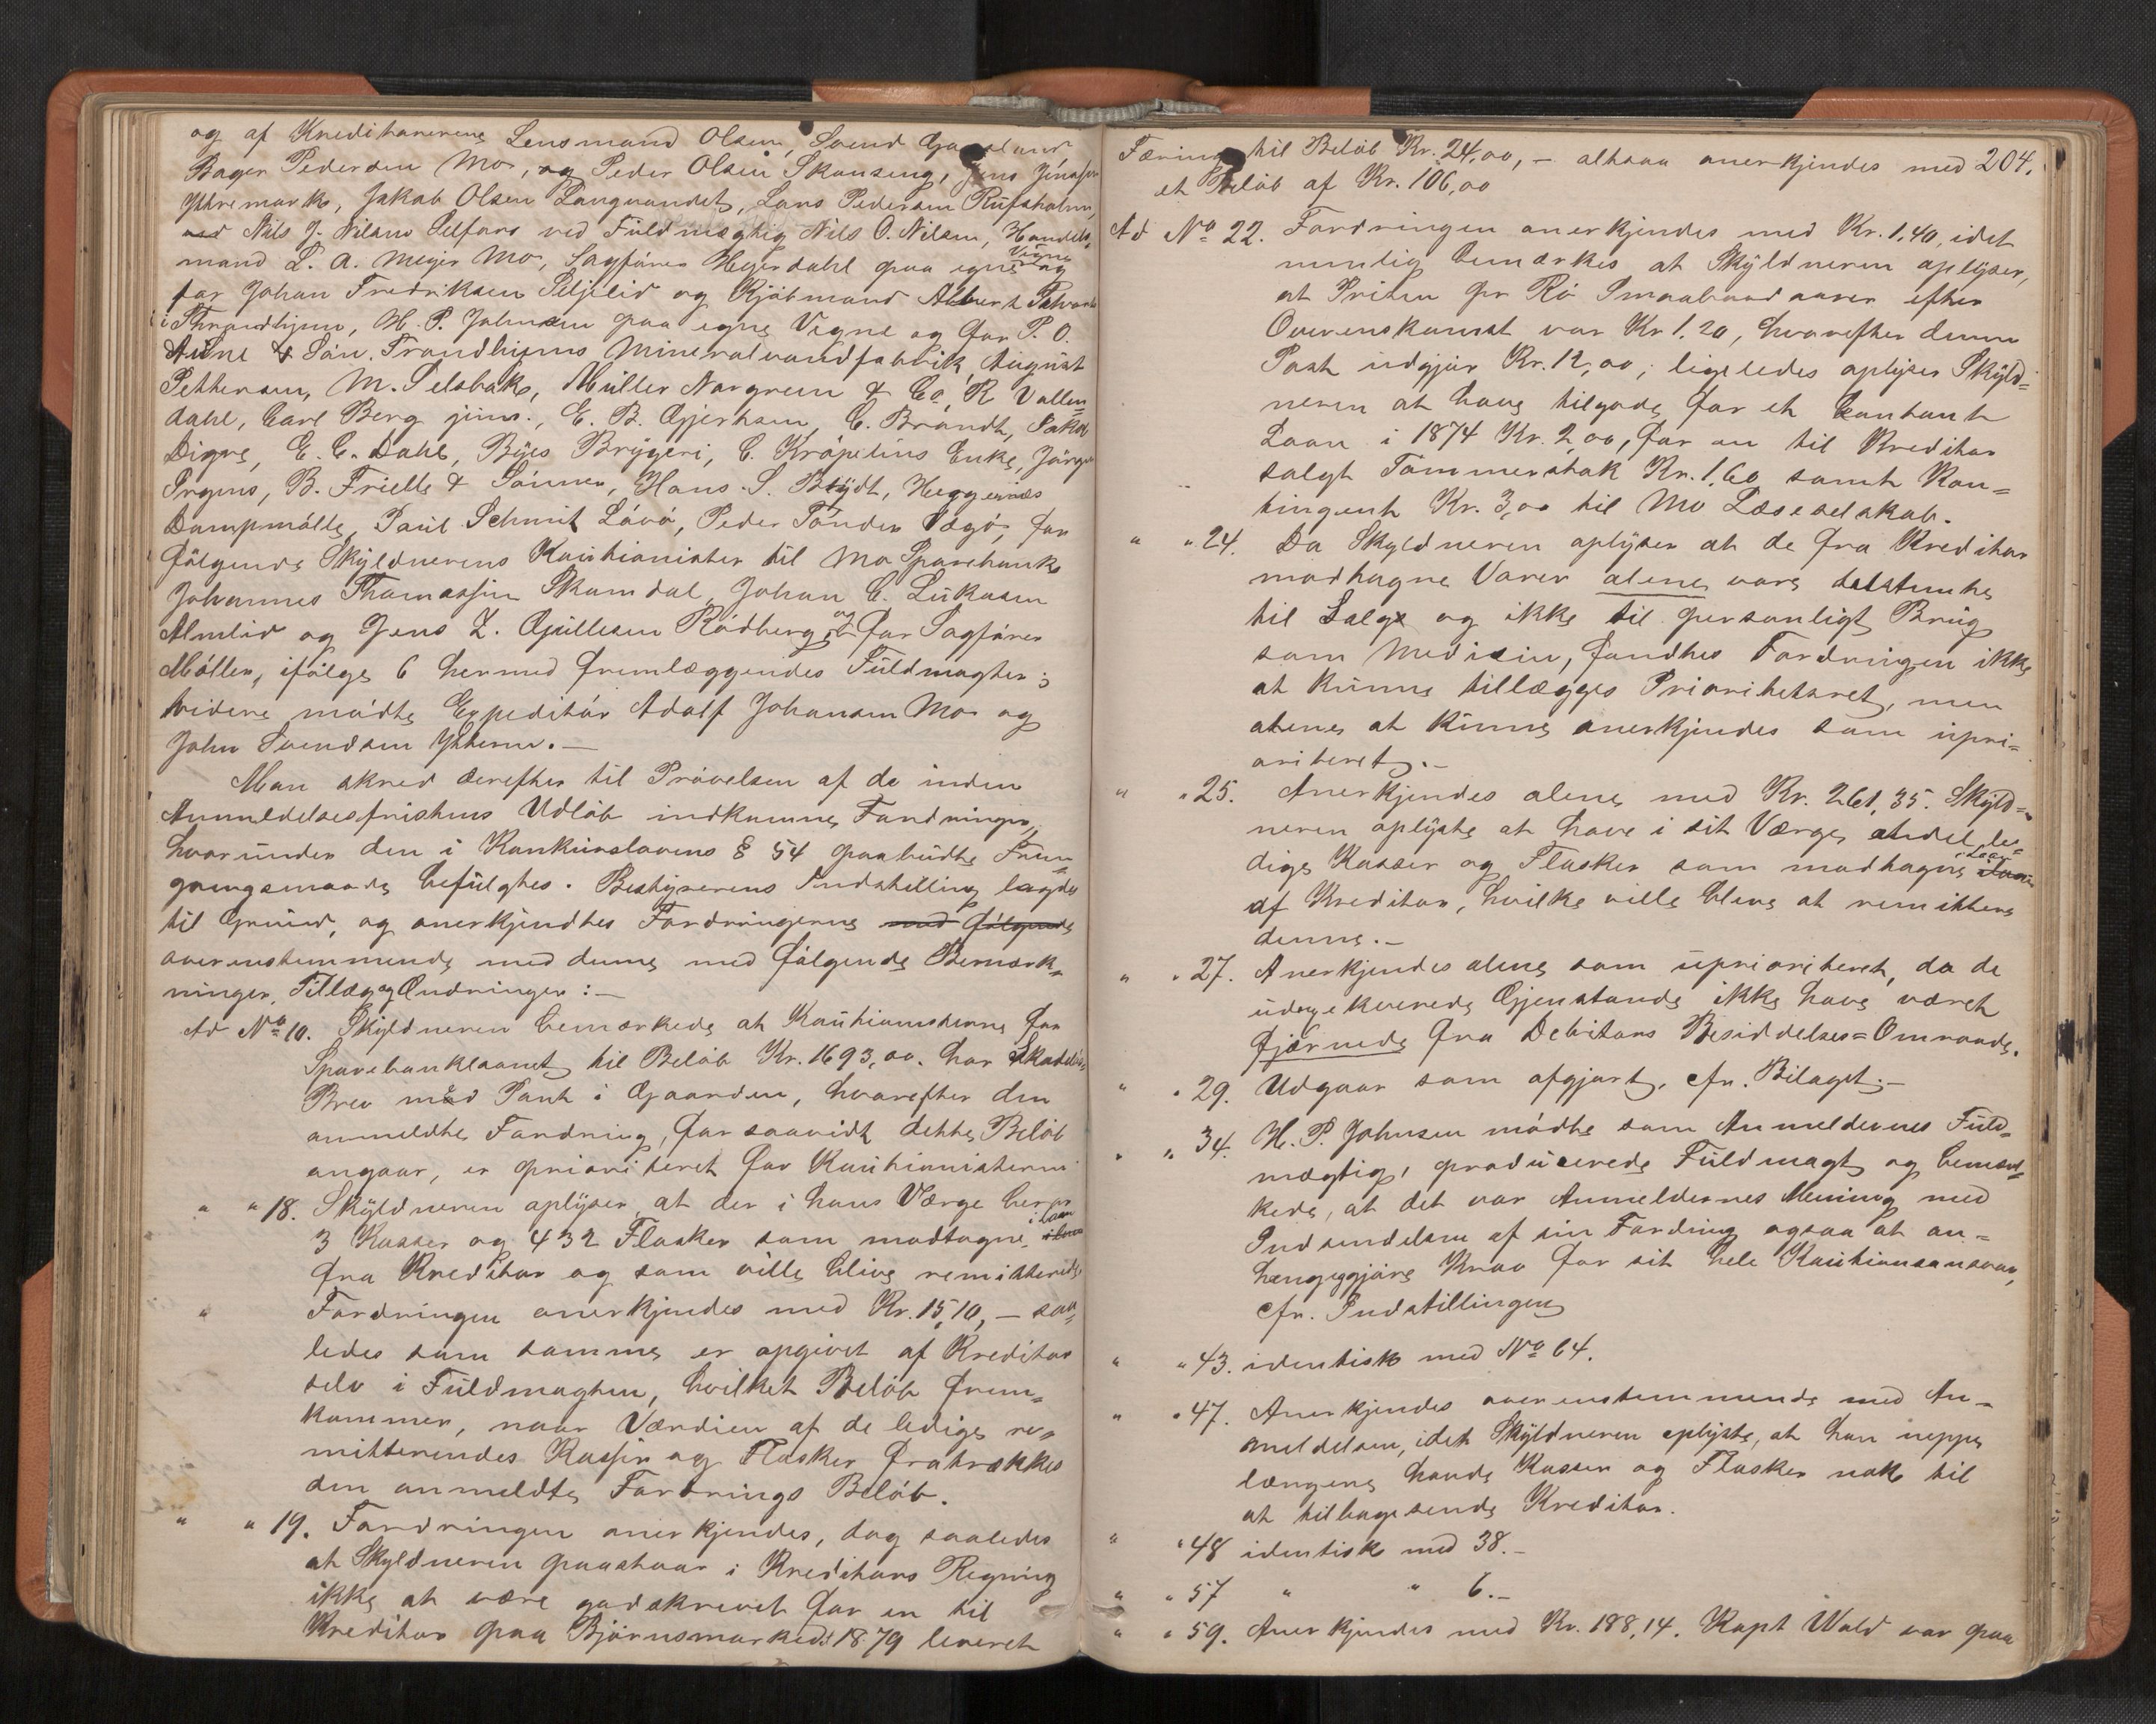 og af Kreditorerne Lensmand Olsen, Svend
Bager Pedersen Mo, og Peder Olsen Skonseng, Jens Jonassen
Yttremark, Jakob Olsen Langvandet, Lars Pedersen Rufsholm,
Nils J. Nilsens Selfors ved Fuldmægtig Nils O. Nilsen, Handels-
mand L. A. Meyer Mo, Sagfører Heyerdahl paa egne Vegne og
for Johan Fredriksen Seljelid og Kjøbmand Albert
i Throndhjem, H. P. Johnsen paa egne Vegne og for P. O.
Aune & Søn, Trondhjems Mineralvandfabrik, August
Pettersen, M. Selsbak, Müller Norgreen & Co, R Vullum-
dahl, Carl Berg jun., E. B. Gjertsen, C. Brandt, Jakob
Digre, E. C. Dahl, Byes Bryggeri, C. Kröpelins Enke, Jörgen
Irgens, B. Frielle & Sönner, Hans S. Blydt, Heggernæs
Dampmölle, Paul Schmit Lövö, Peder Tönder Vægö, for
følgende Skyldnerens Kautionister til Mo Sparebank
Johannes Thomassen Skamdal, Johan C. Lukasen
Almlid og Jens Z. Gullesen Rödberg, og for Sagfører
Möller, ifölge 6 hermed fremlæggendes Fuldmagter;
videre mödte Expeditör Adolf Johansen Mo og
John Svendsen Ytteren.—
Man skred derefter til Prövelsen af de inden
Anmeldelsesfristens Udlöb indkomne Fordringer,
hvorunder den i Konkurslovens § 54 paabudte Frem-
gangsmaade befulgtes. Bestyrerens Indstilling lagdes
til Grund, og anerkjendtes Fordringerne med fölgende
overensstemmende med denne med fölgende Bemærk-
ninger, Tillæg og Ændringer:—
Ad No 10. Skyldneren bemærkede at Kautionisterne for
Sparebanklaanet til Belöb Kr. 1693,00. har Skadeslös-
Brev med Pant i Gaarden, hvorefter den
anmeldte Fordring, for saavidt dette Belöb
angaar, er prioriteret for Kautionisterne
" " 18. Skyldneren oplyser, at der i hans Værge beror
3 Kasser og 432 Flasker som modtagne i Laan
fra Kreditor og som ville blive remitterede
" Fordringen anerkjendes med Kr. 15,10,— saa-
ledes som samme er opgivet af Kreditor
selv i Fuldmagten, hvilket Belöb frem-
kommer, naar Værdien af de ledige re-
mitterendes Kasser og Flasker fratrækkes
den anmeldte Fordrings Belöb.
" " 19. Fordringen anerkjendes, dog saaledes
at Skyldneren paastaar i Kreditors Regning
ikke at være godskrevet for en til
Kreditor paa Bjørnsmarked 1879 leveret
Færing til Belöb Kr. 24,00,— altsaa anerkjendes med 204.
et Belöb af Kr. 106,00
Ad No 22. Fordringen anerkjendes med Kr. 1,40, idet
nemlig bemærkes at Skyldneren oplyser,
at Prisen pr Ro Smaabaadaarer efter
Overenskomst var Kr 1.20, hvorefter denne
Post udgjør Kr. 12,00; ligeledes oplyser Skyld-
neren at have tilgode for et kontant
Laan i 1874 Kr. 2,00, for en til Kreditor
solgt Tömmerstok Kr. 1.60 samt Kon-
tingent Kr. 3,00 til Mo Læseselskab.
" " 24. Da Skyldneren oplyser at de fra Kreditor
modtagne Varer alene vare bestemte
til Salg og ikke til personligt Brug
som Medisin, fandtes Fordringen ikke
at kunne tillægges Prioritetsret, men
alene at kunne anerkjendes som upri-
oriteret.—
" " 25. Anerkjendes alene med Kr. 261,35. Skyld-
neren oplyste at have i sit Værge endel le-
dige Kasser og Flasker som modtagne i Laan
af Kreditor, hvilke ville blive at remittere
denne.—
" " 27. Anerkjendes alene som uprioriteret, da de
udpekerede Gjenstande ikke have været
fjærnede fra Debitors Besiddelses-Omraade.
" " 29. Udgaar som afgjort, cfr. Bilaget.—
" " 34. H. P. Johnsen mödte som Anmeldernes Fuld-
mægtig, producerede Fuldmagt og bemær-
kede, at det var Anmeldernes Mening med
Indsendelsen af sin Fordring ogsaa at an-
hængiggjöre Krav for sit hele Kautionsansvar,
cfr. Indstillingen
" " 43. identisk med No 64.
" " 47. Anerkjendes overensstemmende med An-
meldelsen, idet Skyldneren oplyste, at han neppe
længere havde Kasser og Flasker nok til
at tilbagesende Kreditor.
" " 48 identisk med 38.—
" " 57 " " 6.—
" " 59. Anerkjendes med Kr. 188,14. Kapt Wold var paa